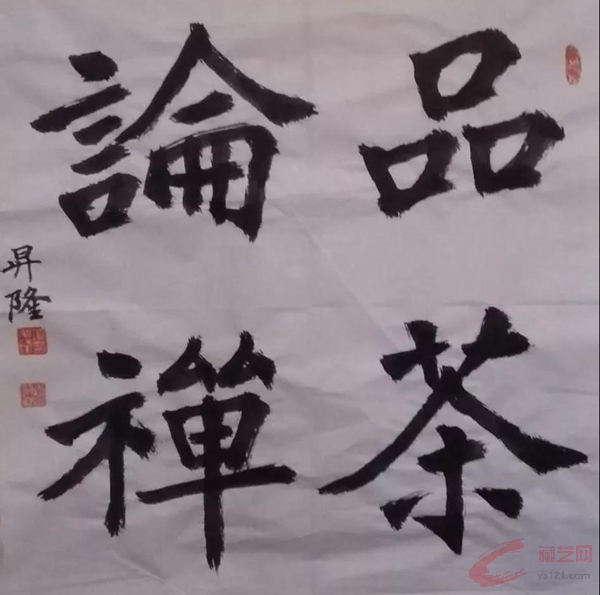 品茶
論禪
昇隆
藏艺网
ys121.com